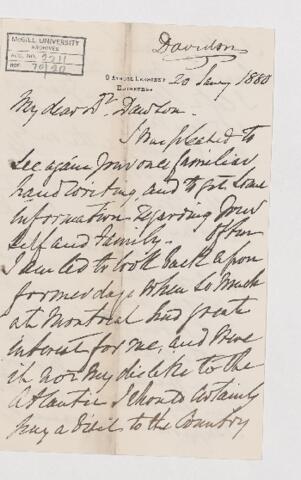 Davidson
McGILL UNIVERSITY
ARCHIVES
ACC. NO. 2211
REF.
EDINBURGH
20 Jany 1880
My dear Dr. Dawson.
I was pleased to
see again your once familiar
hand writing, and to get some
information regarding your
self and family. Often
I am led to look back upon
former days when so much
at Montreal had great
interest for me, and were
it not my dislike to the
Atlantic I should certainly
pay a visit to the Country